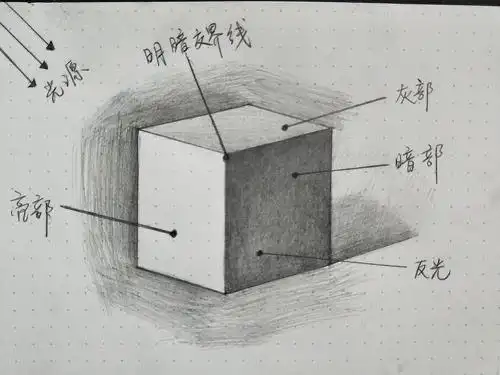 光源
明暗交界线
灰部
暗部
亮部
反光